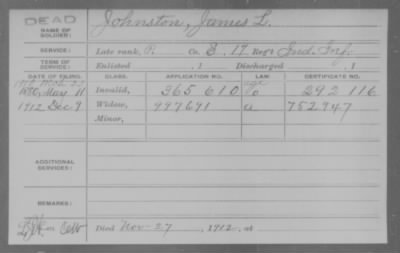 DEAD
NAME OF SOLDIER: Johnston, James L.
SERVICE: Late rank, P. Co. B, 17 Reg't Ind. Inf.
TERM OF SERVICE: Enlisted , 1 Discharged , 1
DATE OF FILING. CLASS. APPLICATION NO. LAW CERTIFICATE NO.
1880, May 11 Invalid, 365 610 292 116
1912 Dec 9 Widow, 997691 a 752947
Minor,
ADDITIONAL SERVICES:
REMARKS:
Died Nov. 27, 1912, at